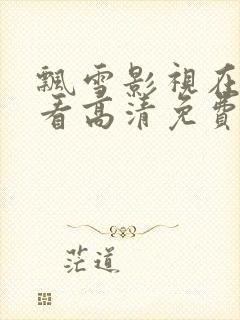 飄雪影視在
看高清免費
茫道